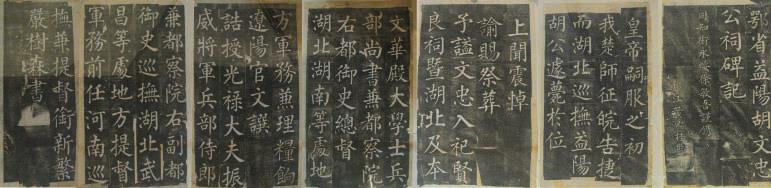 鄂省益陽胡文忠
公祠碑記
皇帝嗣服之初
我楚師征皖告捷
而湖北巡撫益陽
胡公遽薨於位
上聞震悼
諭賜祭葬
予諡文忠入祀賢
良祠暨湖北及本
文華殿大學士兵
部尚書兼都察院
右都御史總督
湖北湖南等處地
方軍務兼理糧餉
遼陽官文譔
誥授光祿大夫振
威將軍兵部侍郎
兼都察院右副都
御史巡撫湖北武
昌等處地方提督
軍務前任河南巡
撫兼提督銜新繁
嚴樹森書